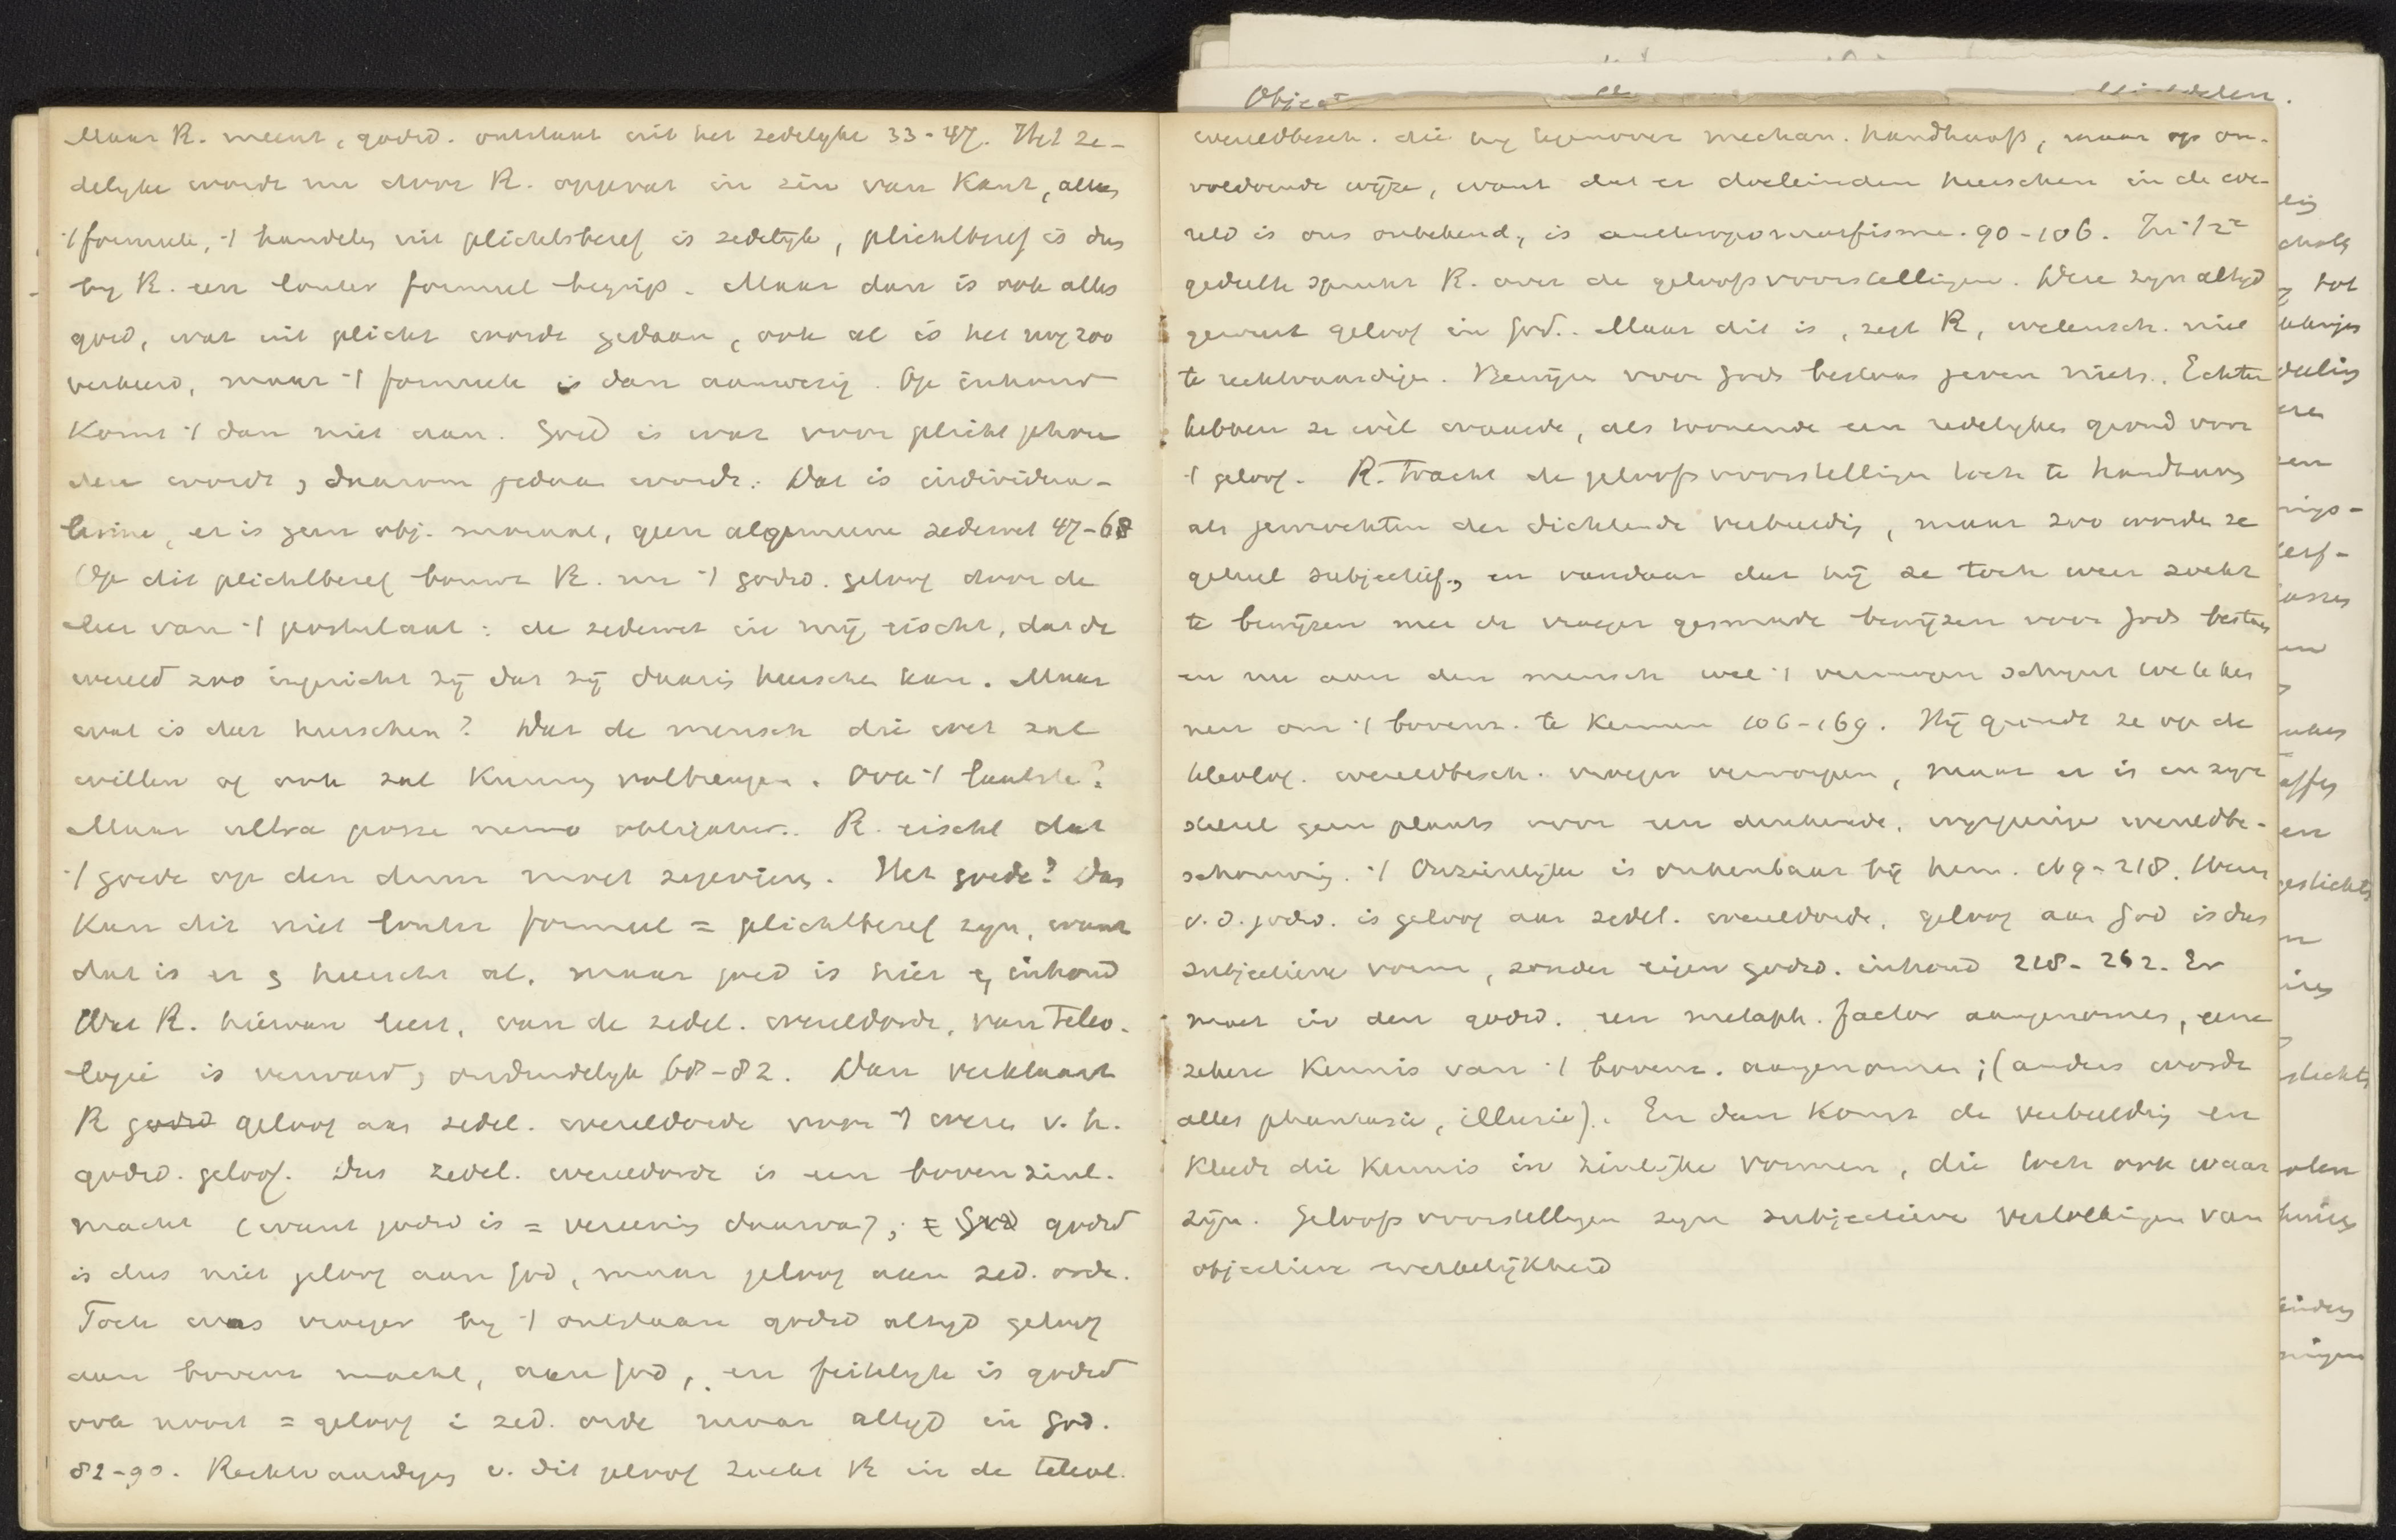 Maar R. meent, godsd. ontstaat uit het zedelyke 33-47. Het ze-
delyke wordt nu door R. opgevat in zin van Kant, alles
't formeele, 't handelen uit plichtsbesef is zedelijk, plichtbesef is dus
by R. een louter formeel begrip. Maar dan is ook alles
goed, wat uit plicht wordt gedaan, ook al is het nog zoo
verkeerd, maar 't formeele is dan aanwezig. Op inhoud
Komt 't dan niet aan. Goed is wat voor plicht gehou
den wordt, daarom gedaan wordt. Dat is individua-
lisme, er is geen obj. moraal, geen algemeene zedewet 47-68
Op dit plichtbesef bouwt R. nu 't godsd. geloof door de
leer van 't postulaat: de zedewet in mij eischt, dat de
wereld zoo ingericht zij dat zij daarin heerschen kan. Maar
wat is dat heerschen? Dat de mensch die wet zal
willen of ook zal Kunnen volbrengen. Ook 't laatste?
Maar ultra posse nemo obligatur. R. eischt dat
't goede op den duur moet zegevieren. Het goede? Dus
Kan dit niet louter formeel = plichtbesef zyn, want
dat is er en heerscht al, maar goed is hier inhoud
Wat R. hiervan leert, van de zedel. wereldorde, van Teleo-
logie is verward, onduidelyk 68-82. Dan verklaart
R godsd geloof aan zedel. wereldorde voor 't wezen v. h.
godsd. geloof. Dus zedel. wereldorde is een bovenzinl.
macht (want godsd is = vereenig daarvan); = God godsd
is dus niet geloof aan God, maar geloof aan zed. orde.
Toch was vroeger by 't ontstaan godsd altyd geloof
aan bovenz macht, aan God, en feitelyk is godsd
ook nooit = geloof i zed. orde maar altyd in God.
82-90. Rechtvaardigen v. dit geloof zoekt R in de teleol.
Object
wereldbesch. die hy tegenover mechan. handhaaft, maar op on-
voldoende wijze, want dat er doeleinden heerschen in de we-
reld is ons onbekend, is anthropomorfisme. 90-106. In 't 2e
gedeelte spreekt R. over de geloofsvoorstellingen. Deze zyn altyd
geweest geloof in God. Maar dit is, zegt R, wetensch. niet
te rechtvaardigen. Bewijzen voor Gods bestaan geven niets. Echter
hebben ze wèl waarde, als toonende een redelykes grond voor
't geloof. R. Tracht de geloofsvoorstellingen toch te handhaven
als gewrochten der dichtende verbeelding, maar zoo worden ze
geheel subjectief, en vandaar dat hij ze toch weer zoekt
te bewijzen met de vroeger gesmade bewijzen voor Gods bestaan
en nu aan den mensch wel 't vermogen schynt toe te ken
nen om 't bovenz. te Kennen 106-169. Hij grondt ze op de
teleolog. wereldbesch. vroeger verworpen, maar er is in zyn
stelsel geen plaats voor een denkende, wysgeerige wereldbe-
schouwing. 't Onzienlijke is onkenbaar bij hem. 169-218. Wezen
v. d. godsd. is geloof aan zedel. wereldorde, geloof aan God is dus
subjectieve vorm, zonder eigen godsd. inhoud 218-262. Er
moet in den godsd. een metaph. factor aangenomen, eene
zekere Kennis van 't bovenz. aangenomen; (anders wordt
alles phantasie, illusie). En dan Komt de verbeelding en
Kleedt die Kennis in zinlijke vormen, die toch ook waar
zijn. Geloofsvoorstellingen zyn subjectieve vertolkingen van
objectieve werkelijkheid